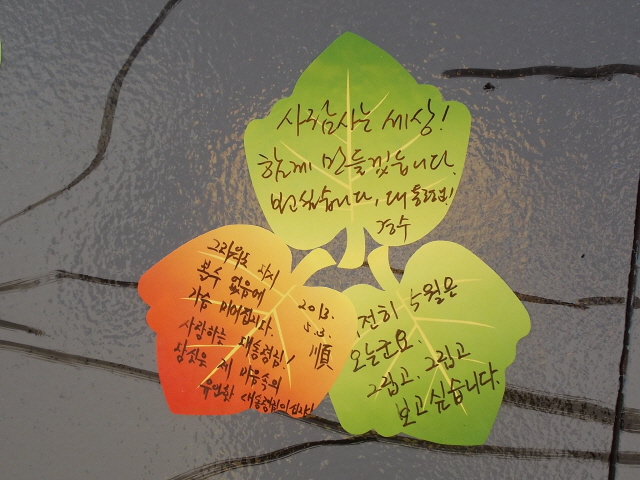 사람사는 세상!
함께 만들겠습니다.
보고싶습니다, 대통령님!
경수
그리워도 다시
볼수 없음에
가슴 미어집니다.
사랑하는 대통령님!
당신은 제 마음속의
유일한 대통령님이십니다
2013.
5.3.
順
전히 수월은
오늘군요.
그립고, 그립고
보고싶습니다.